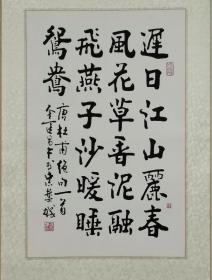 遲日江山麗春
風花草香泥融
飛燕子沙暖睡
鴛鴦
唐杜甫絕句一首